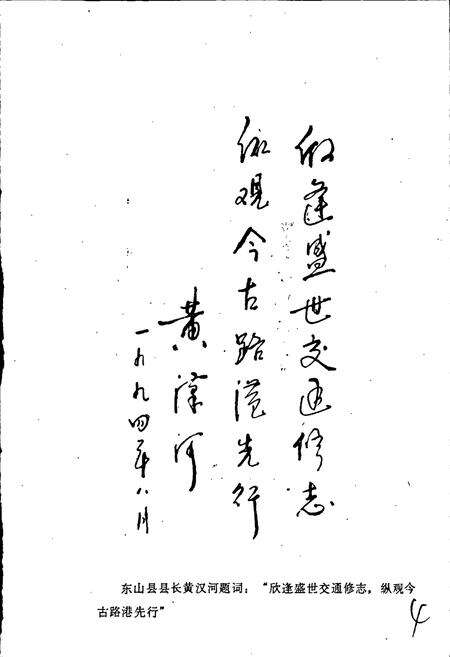 欣逢盛世交通修志
纵观今古路港先行
黄汉河
一九九四年八月
东山县县长黄汉河题词：“欣逢盛世交通修志，纵观今
古路港先行”
4